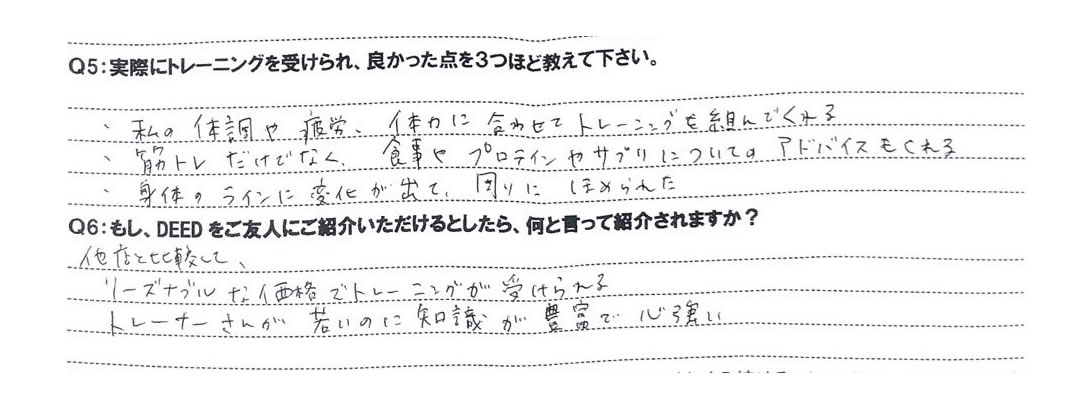 Q5:実際にトレーニングを受けられ、良かった点を3つほど教えて下さい。
・私の体調や疲労、体力に合わせてトレーニングを組んでくれる
・筋トレだけでなく、食事やプロテインやサプリについてのアドバイスもくれる
・身体のラインに変化が出て、周りにほめられた
Q6:もし、DEEDをご友人にご紹介いただけるとしたら、何と言って紹介されますか?
他店と比較して、
リーズナブルな価格でトレーニングが受けられる
トレーナーさんが若いのに知識が豊富で心強い